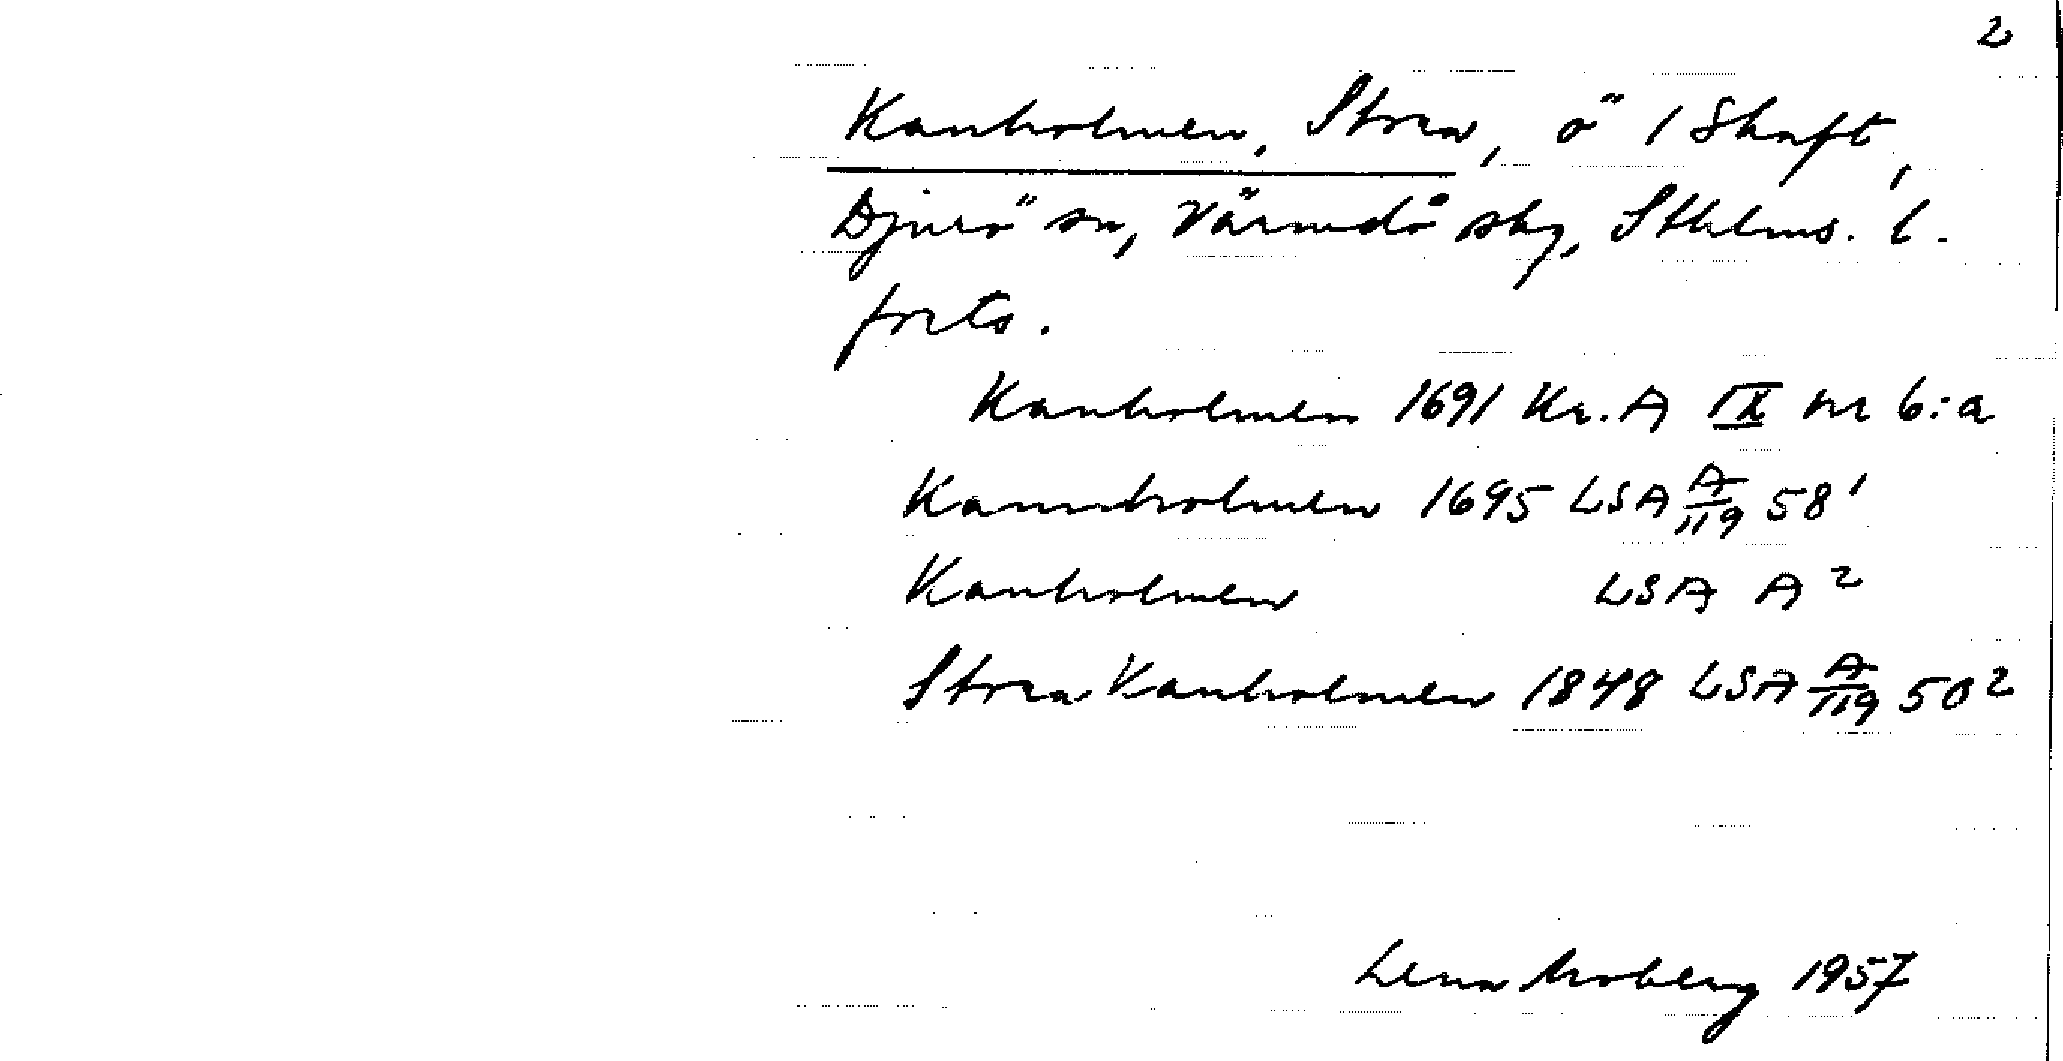 2
Kanholmen, Stora, ö i Skaft,
Djurö sn, Värmdö skg, Sthlms. l.
forts.
Kanholmen 1691 Kr.A IX nr 6:a
Kannholmen 1695 LSA A/119 58¹
Kanholmen LSA A²
Stora Kanholmen 1848 LSA A/119 50²
Lena Moberg 1957